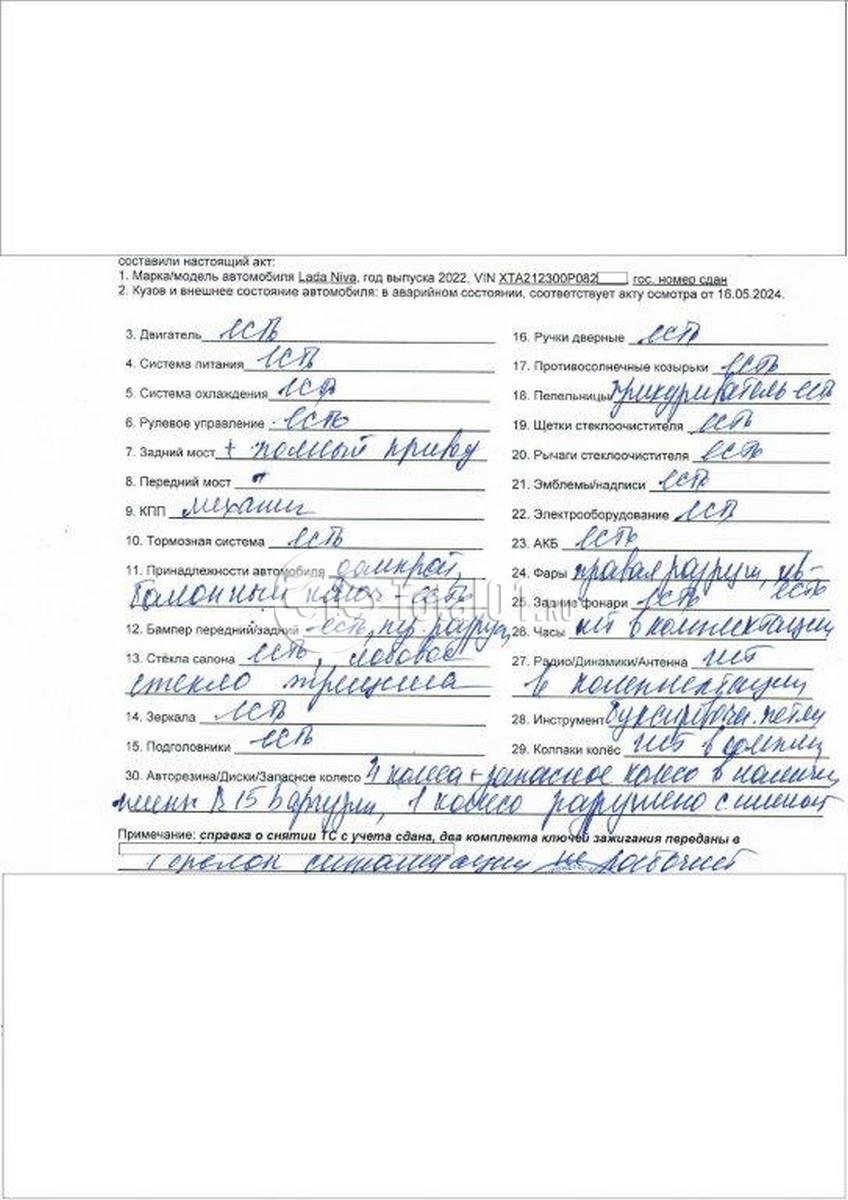 составили настоящий акт:
1. Марка/модель автомобиля Lada Niva, год выпуска 2022, VIN XTA212300P082 гос. номер сдан
2. Кузов и внешнее состояние автомобиля: в аварийном состоянии, соответствует акту осмотра от 16.05.2024.
3. Двигатель есть
4. Система питания есть
5. Система охлаждения есть
6. Рулевое управление есть
7. Задний мост + полный привод
8. Передний мост
9. КПП механич
10. Тормозная система есть
11. Принадлежности автомобиля домкрат,
балонный ключ есть
12. Бампер передний/задний есть, пер разруш,
13. Стёкла салона есть, лобовое
стекло трещина
14. Зеркала есть
15. Подголовники есть
16. Ручки дверные есть
17. Противосолнечные козырьки есть
18. Пепельницы прикуриватель есть
19. Щетки стеклоочистителя есть
20. Рычаги стеклоочистителя есть
21. Эмблемы/надписи есть
22. Электрооборудование есть
23. АКБ есть
24. Фары правая разруш, лев- есть
25. Задние фонари есть
26. Часы нет в комплектации
27. Радио/Динамики/Антенна нет
в комплектации
28. Инструмент буксировочн. петля
29. Колпаки колёс нет в
30. Авторезина/Диски/Запасное колесо 4 колеса + запасное колесо в наличии
шины R15 Баргузин, 1 колесо разрушено с шиной
Примечание: справка о снятии ТС с учета сдана, два комплекта ключей зажигания переданы в
1 брелок сигнализации не рабочий
total01.ru